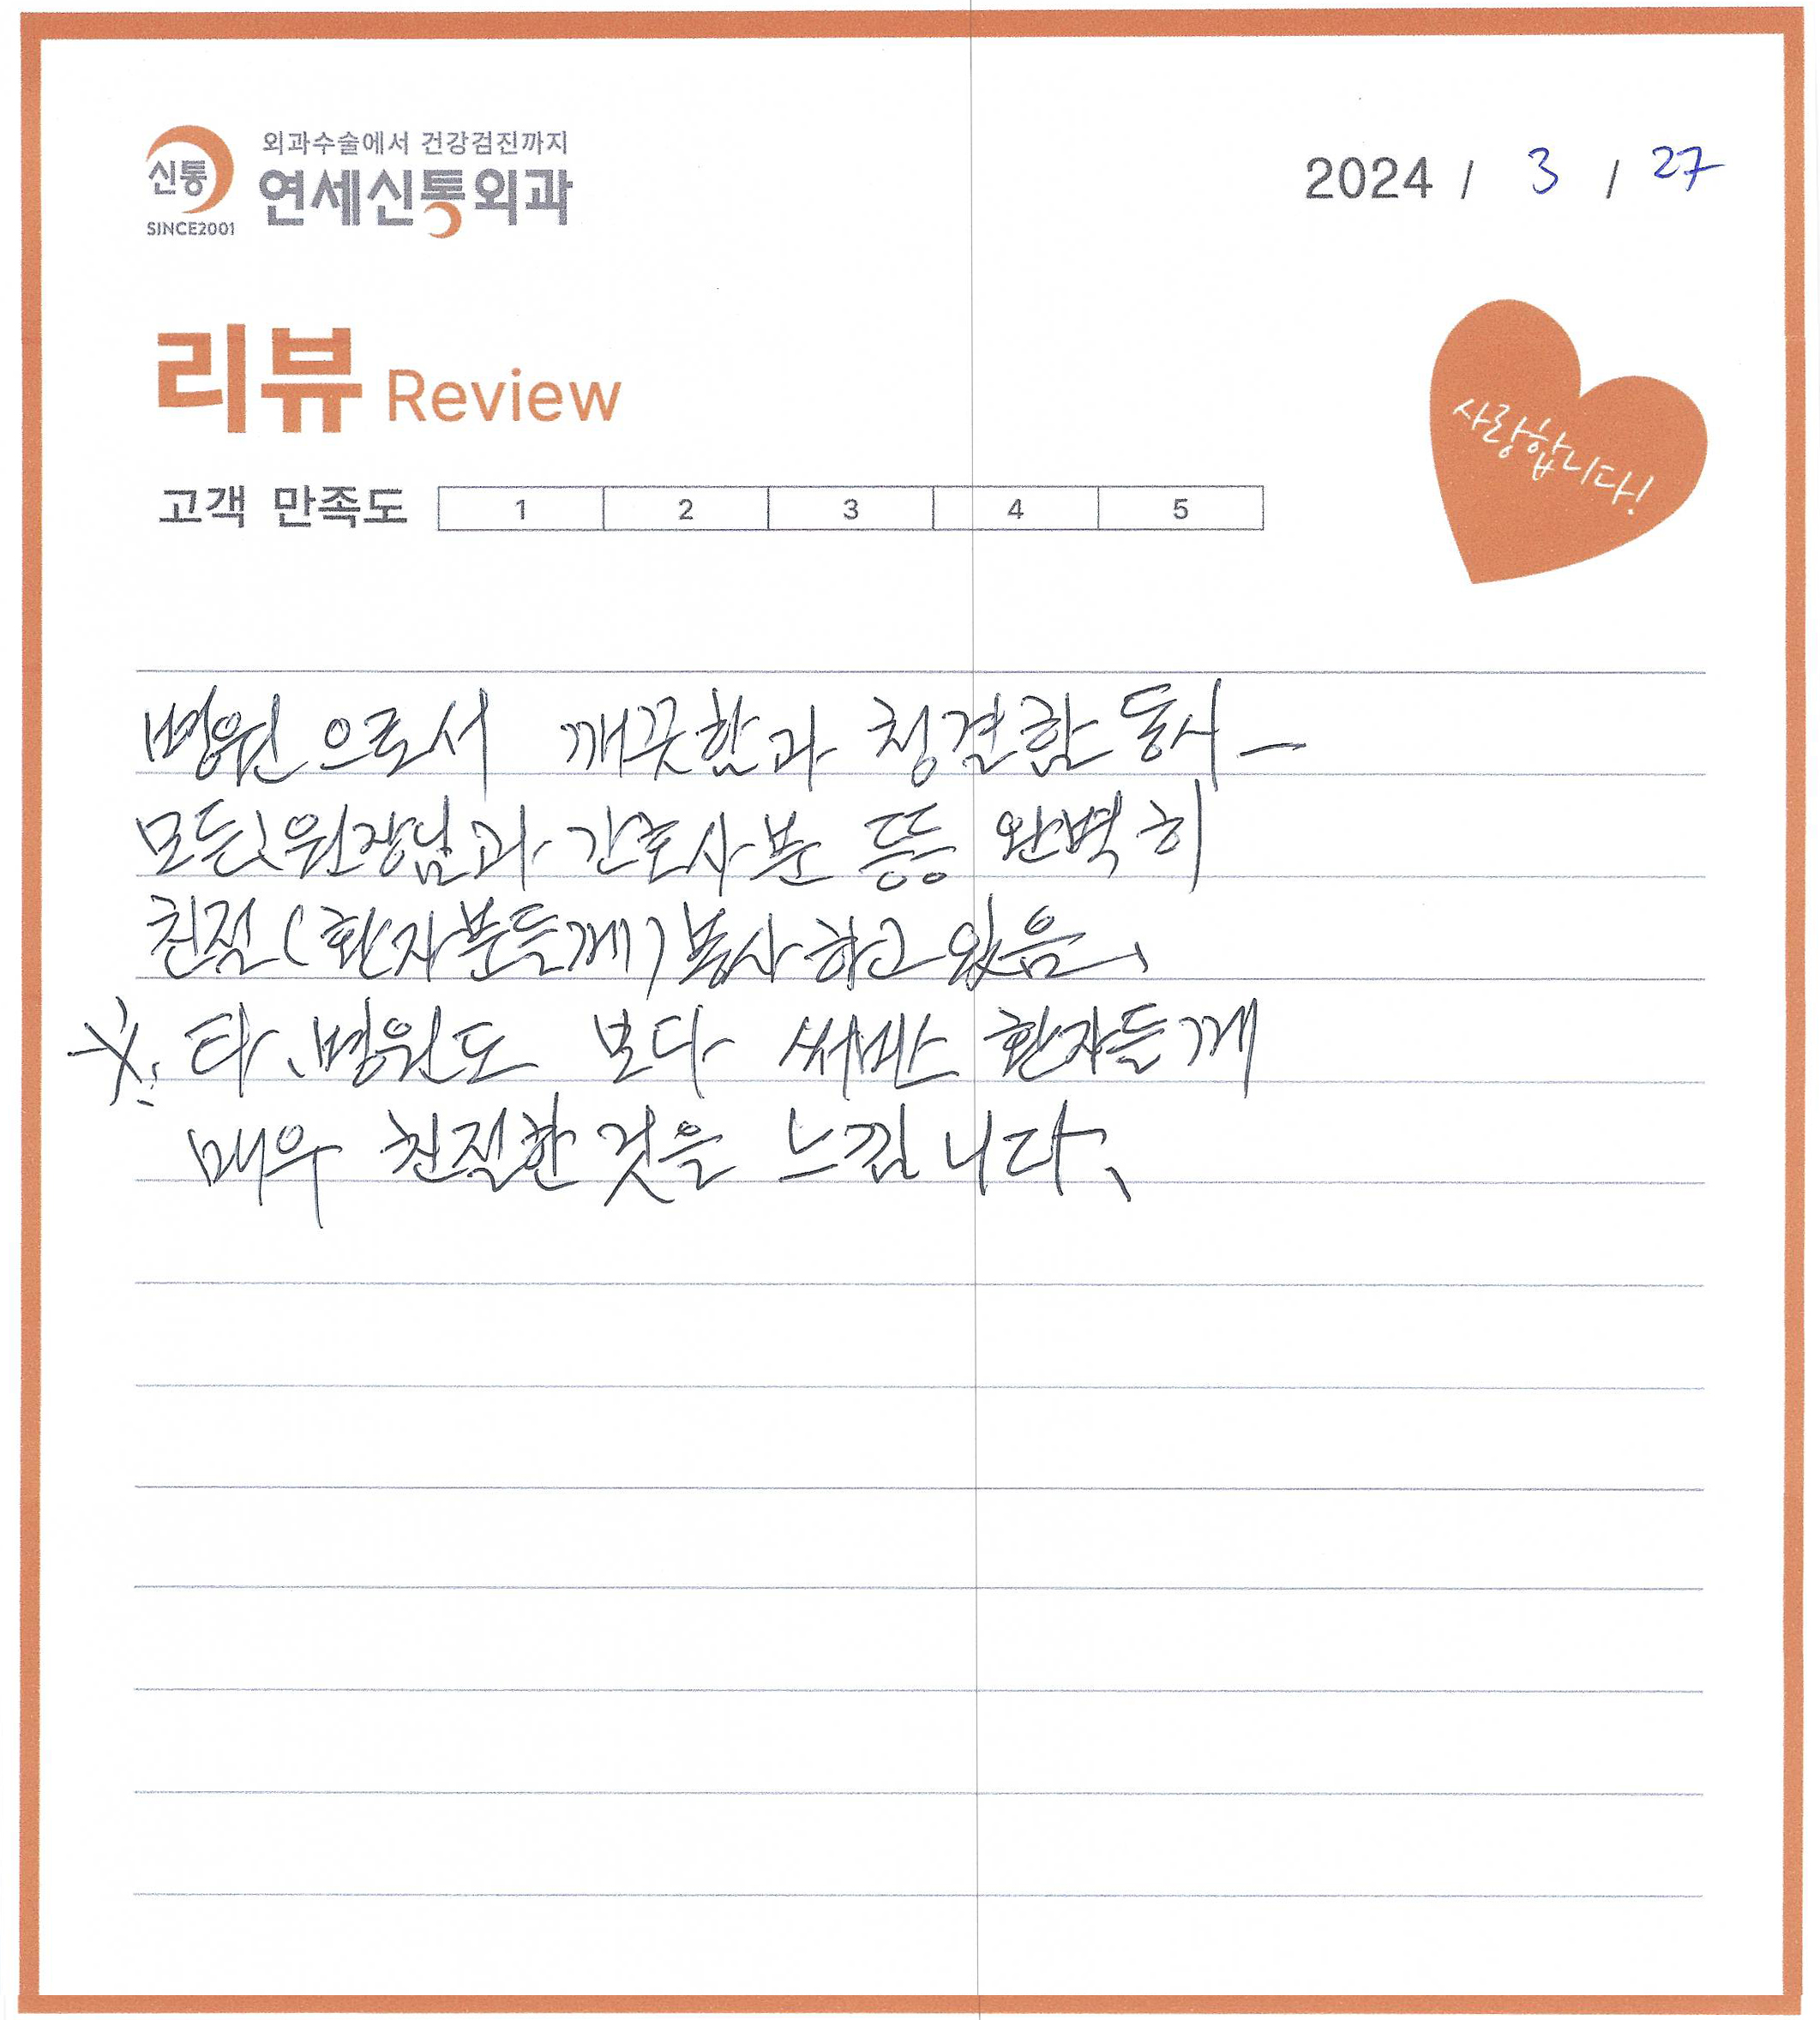 외과수술에서 건강검진까지
신통
연세신통외과
SINCE2001
2024 / 3 / 27
리뷰 Review
사랑합니다!
고객 만족도 1 2 3 4 5
병원으로서 깨끗함과 청결함 동시 -
모든 원장님과 간호사분 등등 완벽히
친절(환자분들께) 봉사하고 있음.
※ 타, 병원도 보다 써비스 환자들께
매우 친절한 것을 느낍니다.